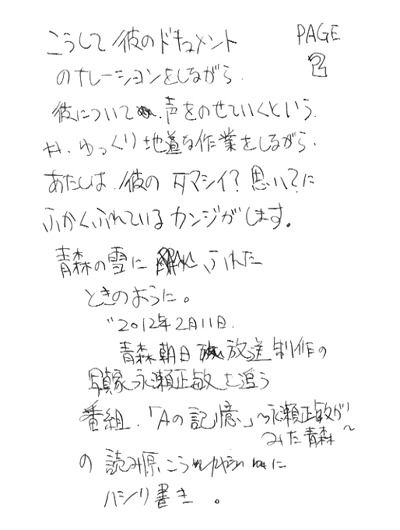 こうして彼のドキュメント
PAGE
2
のナレーションをしながら.
彼について.声をのせていくという.
ゆっくり地道な作業をしながら.
あたしは.彼のタマシイ?思い?に
ふかくふれているカンジがします。
青森の雪に ふれた
ときのように。
"2012年2月11日.
青森朝日 放送制作の
写真家永瀬正敏を追う
番組.「Aの記憶」〜永瀬正敏が
みた青森〜
の読み原こう に
ハシリ書き。